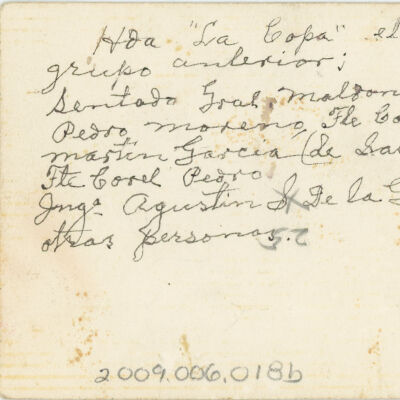 Hda "La Copa" el
grupo anterior;
Sentado Gral. Maldon
Pedro Moreno Fte Co
Martin Garcia (de
Fte Corel Pedro
Yng° Agustin S. De la G
otras personas.
25
2009.006.018b